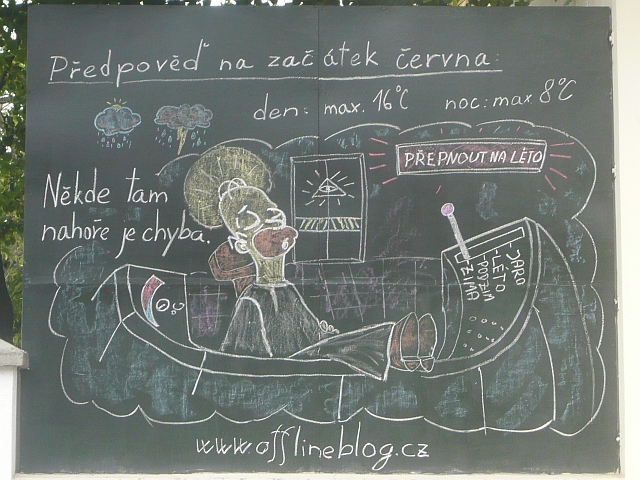 Předpověď na začátek června:
den: max. 16°C noc: max 8°C
PŘEPNOUT NA LÉTO
Někde tam
nahoře je chyba.
JARO
LÉTO
PODZIM
ZIMA
°C
www.offlineblog.cz